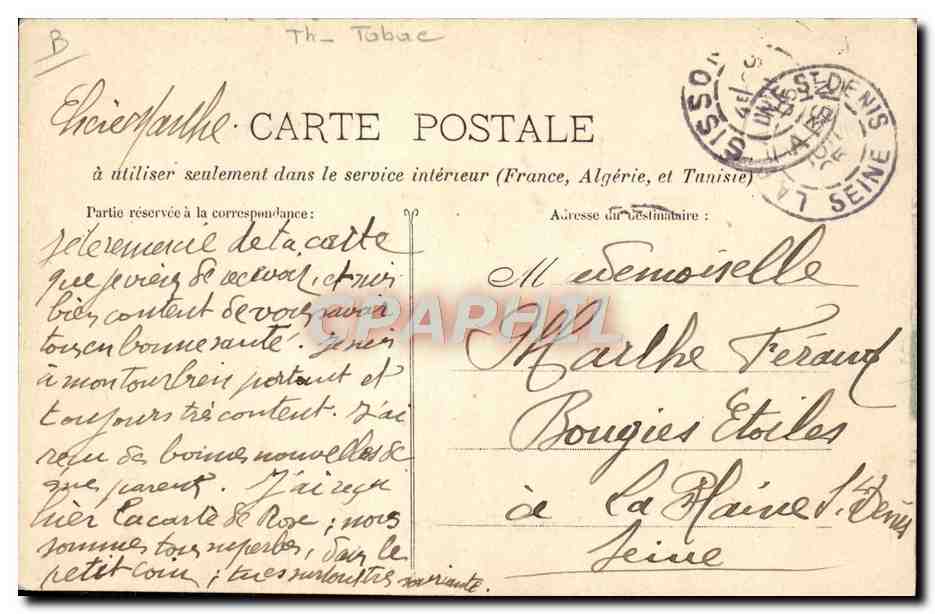 B
Th- Tabac
Chère Marthe.
CARTE POSTALE
à utiliser seulement dans le service intérieur (France, Algérie, et Tunisie)
Partie réservée à la correspondance:
Adresse du destinataire :
SISSO
LA PL UNE ST DENIS
SEINE
Je te remercie de ta carte
que je viens de recevoir, et suis
bien content de vous savoir
tous en bonne santé. Je suis
à mon tour bien portant et
toujours très content. J'ai
reçu de bonnes nouvelles de
mes parent. J'ai reçu
hier la carte de Rose ; nous
sommes tous superbes, dans le
petit coin ; tu es surtout très souriante.
Mademoiselle
Marthe Féraud
Bougies Etoiles
à La Plaine St Denis
Seine
CPAPHIL